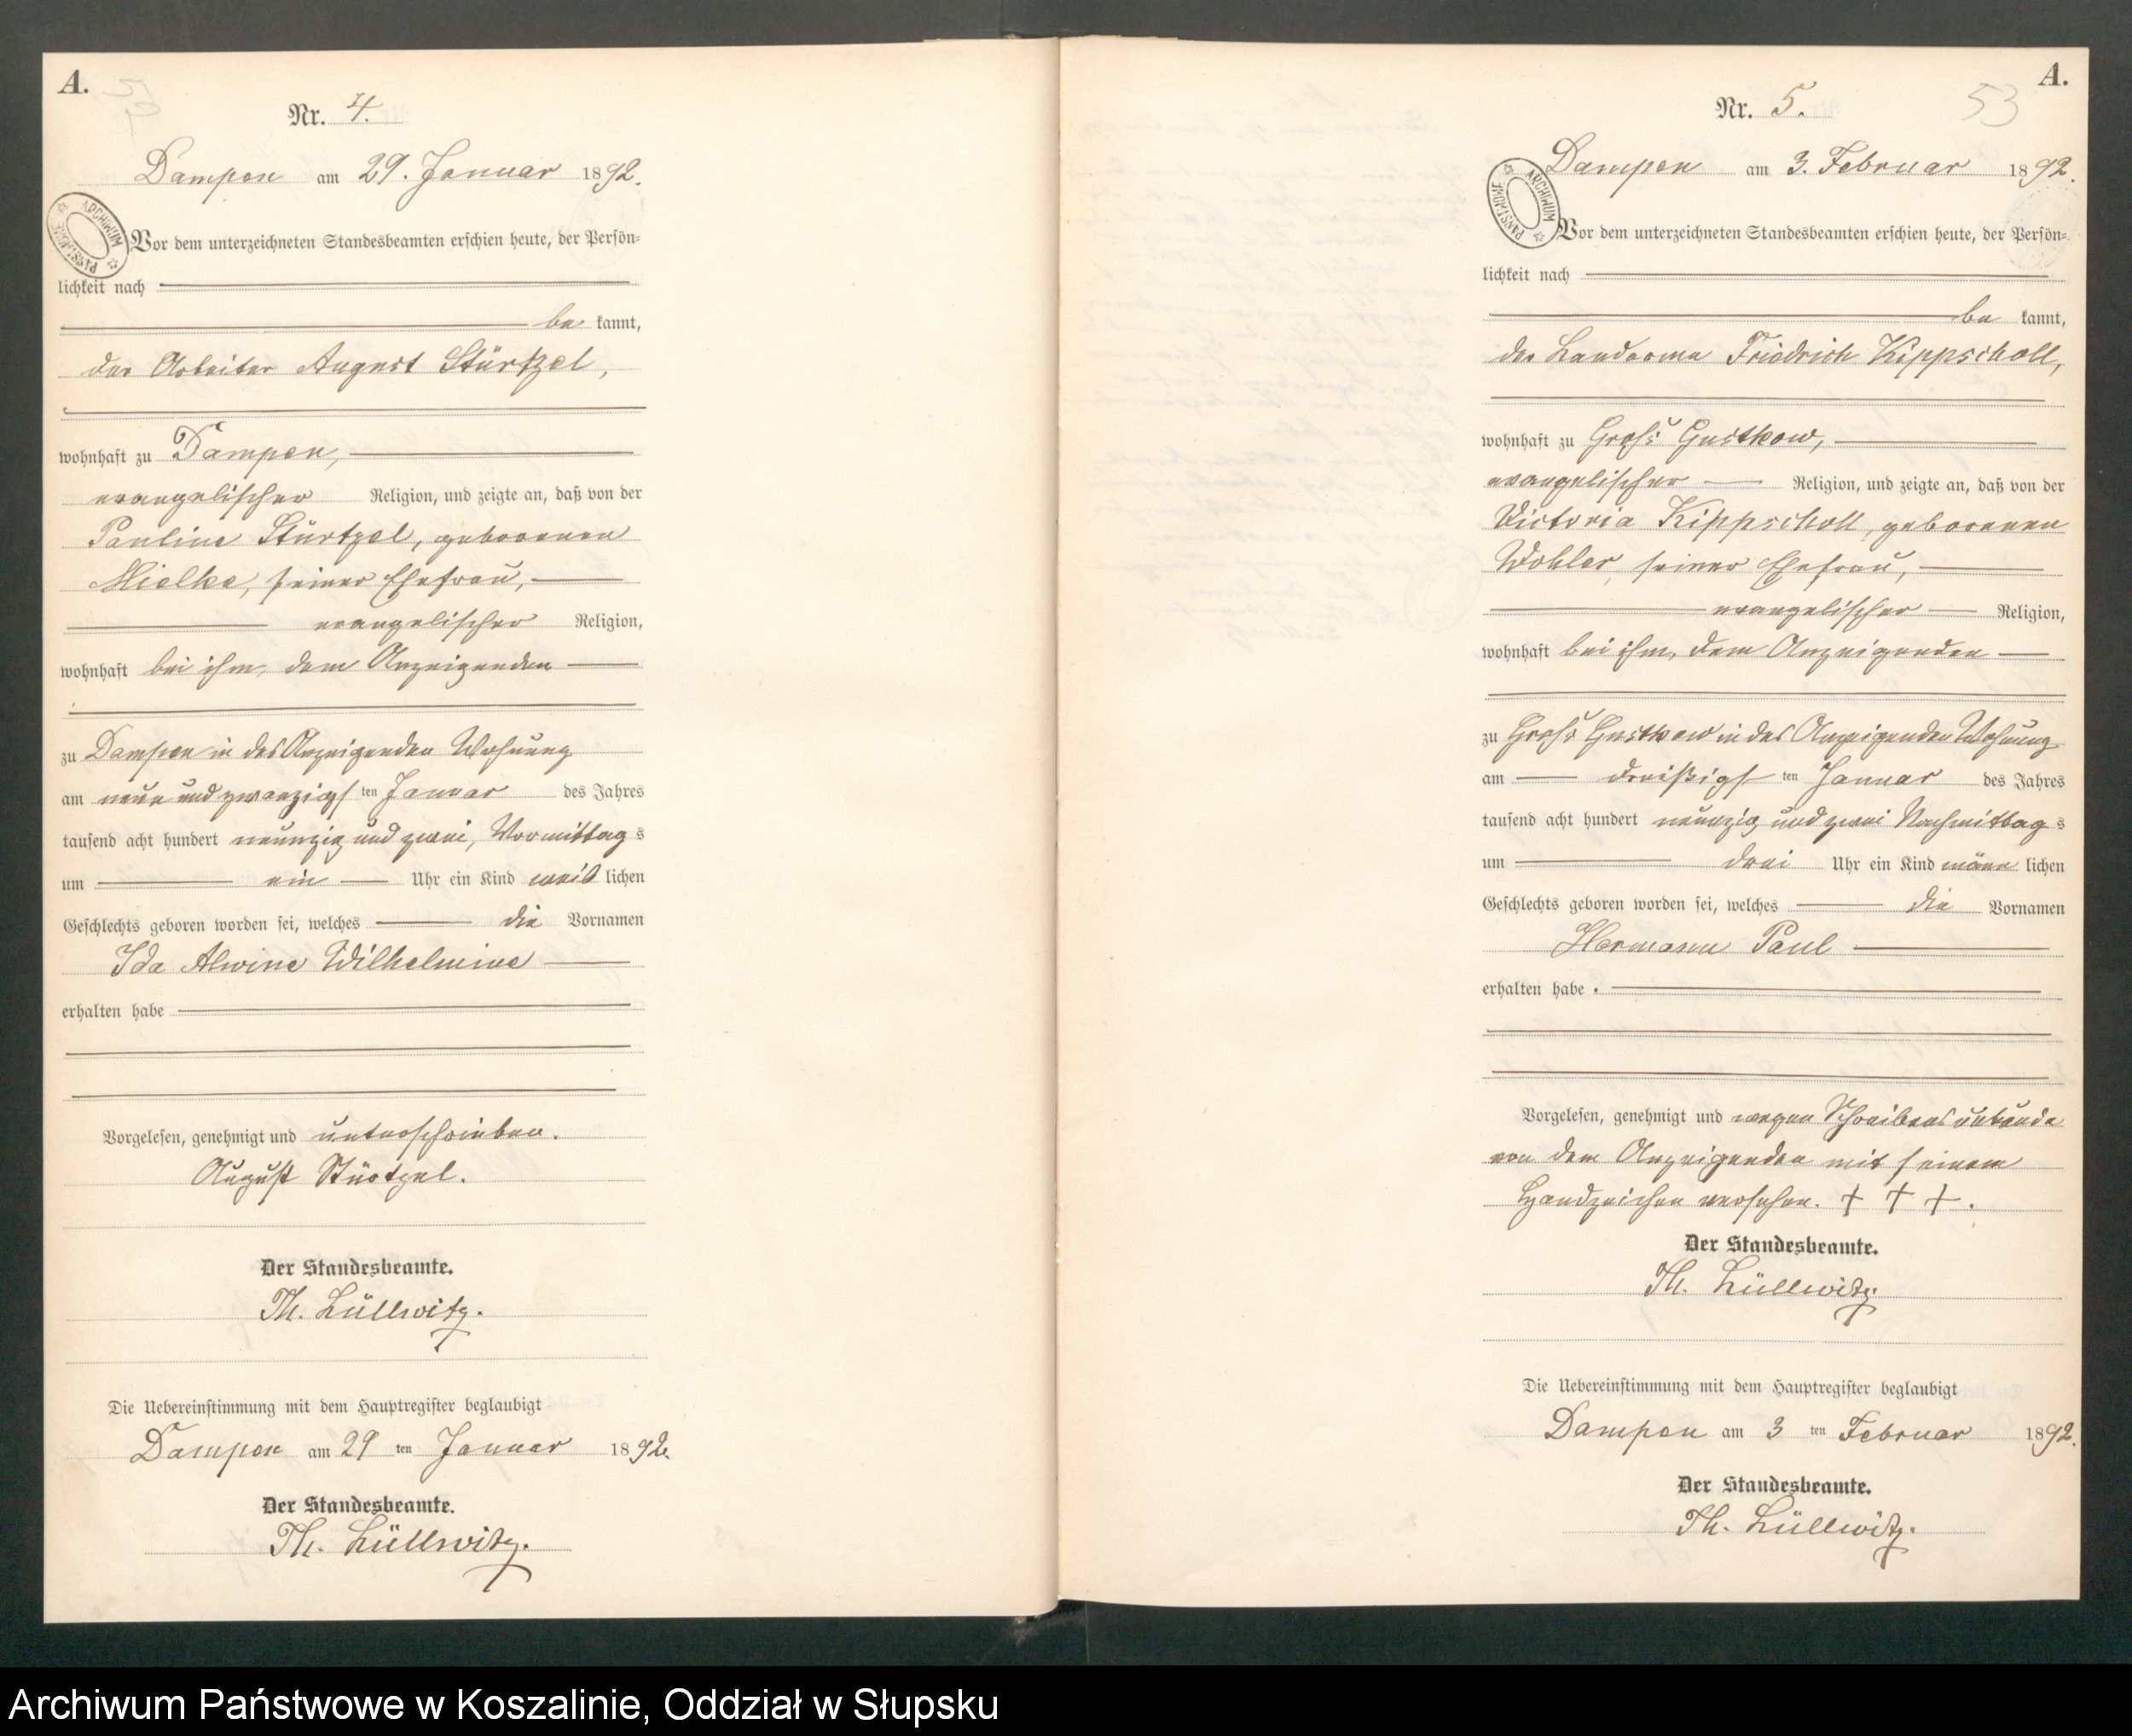 A.
Nr. 4.
Dampen am 29. Januar 1892.
ARCHIWUM PAŃSTWOWE
Vor dem unterzeichneten Standesbeamten erschien heute, der Persön-
lichkeit nach
be kannt,
der Arbeiter August Stürtzel,
wohnhaft zu Dampen,
evangelischer Religion, und zeigte an, daß von der
Pauline Stürtzel, geborenen
Mielke, seiner Ehefrau,
evangelischer Religion,
wohnhaft bei ihm, dem Anzeigenden
zu Dampen in des Anzeigenden Wohnung
am neun und zwanzigsten Januar des Jahres
tausend acht hundert neunzig und zwei, Vormittags
um ein Uhr ein Kind weiblichen
Geschlechts geboren worden sei, welches die Vornamen
Ida Alwine Wilhelmine
erhalten habe
Vorgelesen, genehmigt und unterschrieben.
August Stürtzel.
Der Standesbeamte.
Th. Lüllwitz.
Die Uebereinstimmung mit dem Hauptregister beglaubigt
Dampen am 29 ten Januar 1892.
Der Standesbeamte.
Th. Lüllwitz.
A.
53
Nr. 5.
Dampen am 3. Februar 1892.
ARCHIWUM PAŃSTWOWE
Vor dem unterzeichneten Standesbeamten erschien heute, der Persön-
lichkeit nach
be kannt,
der Friedrich Kippscholl,
wohnhaft zu Groß Gustkow,
evangelischer Religion, und zeigte an, daß von der
Victoria Kippscholl, geborenen
Wobler, seiner Ehefrau,
evangelischer Religion,
wohnhaft bei ihm, dem Anzeigenden
zu Groß Gustkow in des Anzeigenden Wohnung
am dreißigsten Januar des Jahres
tausend acht hundert neunzig und zwei Nachmittags
um drei Uhr ein Kind männlichen
Geschlechts geboren worden sei, welches die Vornamen
Hermann Paul
erhalten habe.
Vorgelesen, genehmigt und wegen Schreibensunkunde
von dem Anzeigenden mit seinem
Handzeichen versehen. + + +.
Der Standesbeamte.
Th. Lüllwitz.
Die Uebereinstimmung mit dem Hauptregister beglaubigt
Dampen am 3 ten Februar 1892.
Der Standesbeamte.
Th. Lüllwitz.
Archiwum Państwowe w Koszalinie, Oddział w Słupsku